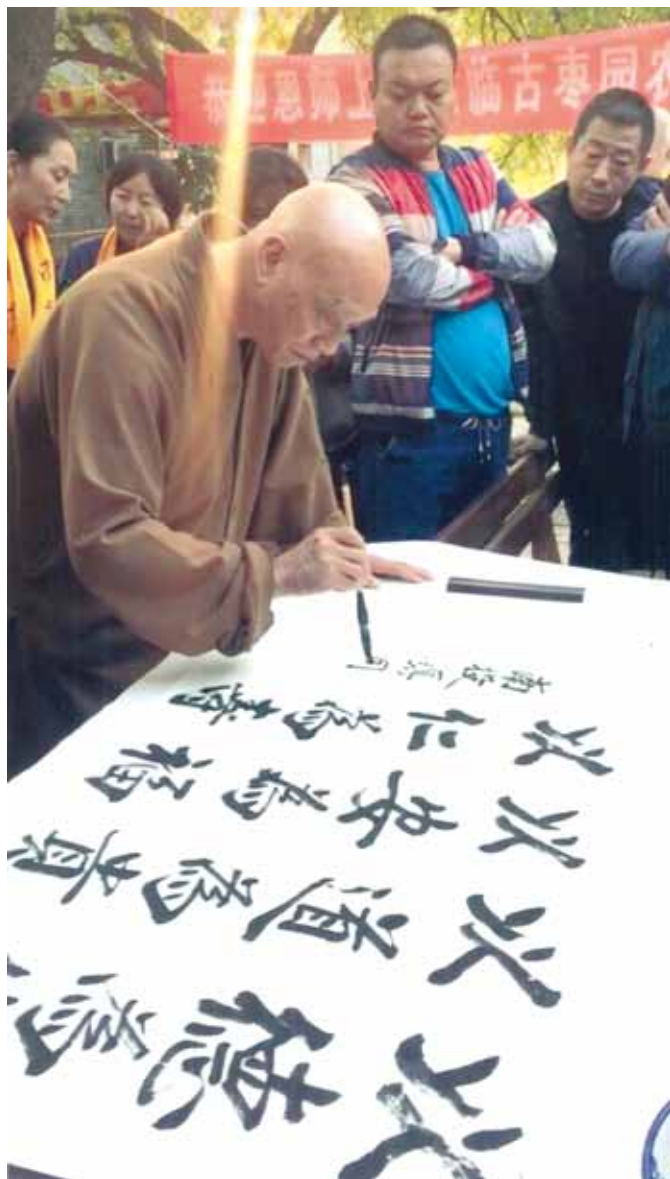 恭迎恩师上 临古枣园农
以德為
以道為貴
以安為福
以仁為